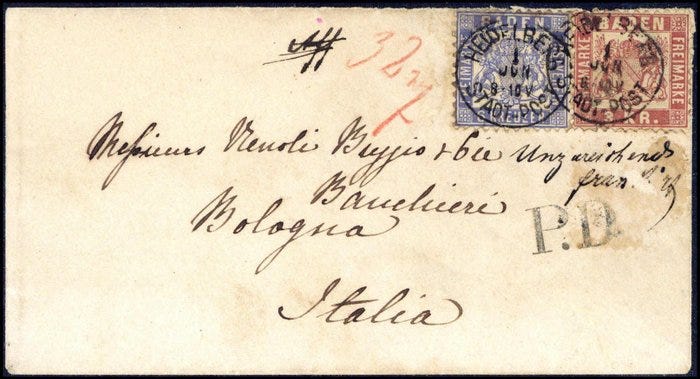 BADEN
FREIMARKE
HEIDELBERG
1
JUN
8-10V
STADT POST
BADEN
FREIMARKE
3 KR.
HEIDELBERG
1
JUN
8-10V
STADT POST
32
Messieurs Venoli Buggio & Cie
Banchieri
Bologna
Italia
Unzureichend
frankirt
P.D.